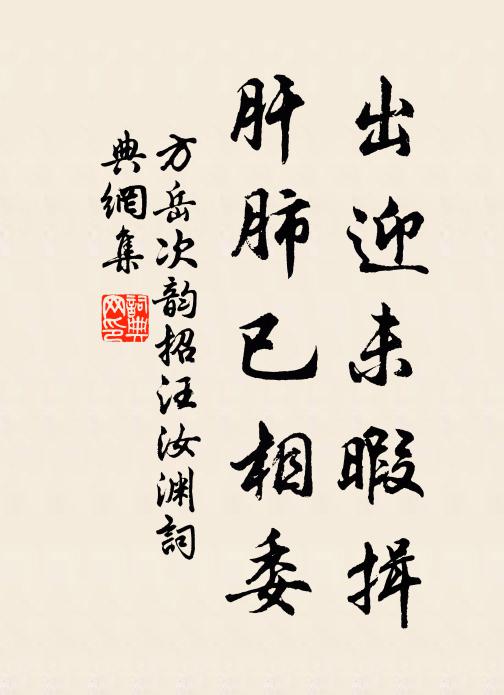 出迎未暇揖
肝肺已相委
方岳次韵招汪汝渊詞
典網集
詞典
网印